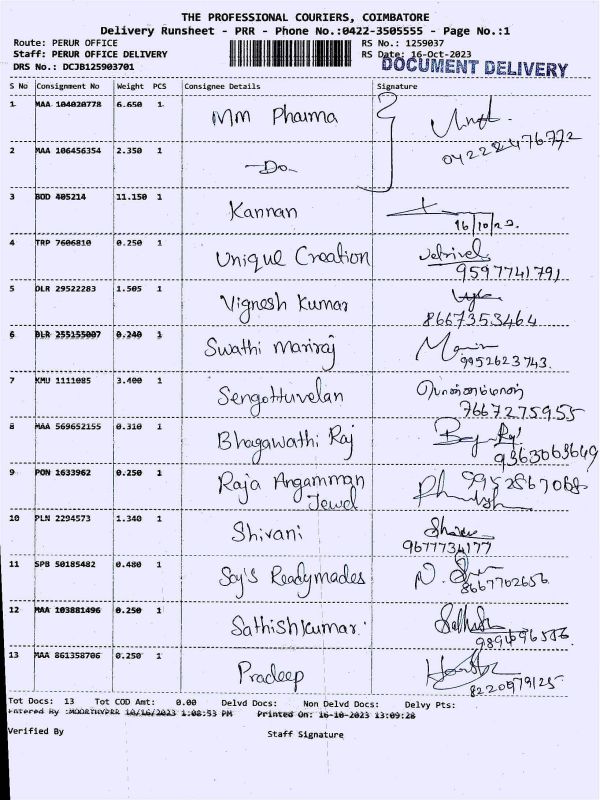 THE PROFESSIONAL COURIERS, COIMBATORE
Delivery Runsheet - PRR - Phone No.:0422-3505555 - Page No.:1
Route: PERUR OFFICE RS No.: 1259037
Staff: PERUR OFFICE DELIVERY RS Date: 16-Oct-2023
DRS No.: DCJB125903701 DOCUMENT DELIVERY
S No Consignment No Weight PCS Consignee Details Signature
1 MAA 104020778 6.650 1 Mm Pharma
2 MAA 106456354 2.350 1 -Do-
3 BOD 405214 11.150 1 Kannan
16/10/23.
4 TRP 7606810 0.250 1 Unique Creation Vetrivel
9597741791.
5 DLR 29522283 1.505 1 Vignesh Kumar
8667353464
6 DLR 255155007 0.240 1 Swathi Mariraj
9952623743.
7 KMU 1111085 3.400 1 Sengottuvelan பொன்னம்மாள்
7667275955
8 MAA 569652155 0.310 1 Bhagawathi Raj
9363063649
9 PON 1633962 0.250 1 Raja Angamman
Jewel
10 PLN 2294573 1.340 1 Shivani
9677734177
11 SPB 50185482 0.480 1 Say's Readymades
8667702656
12 MAA 103881496 0.250 1 Sathishkumar
13 MAA 861358706 0.250 1 Pradeep
8220979125
Tot Docs: 13 Tot COD Amt: 0.00 Delvd Docs: Non Delvd Docs: Delvy Pts:
Entered By :MOORTHYPRR 10/16/2023 1:08:53 PM Printed On: 16-10-2023 13:09:28
Verified By Staff Signature